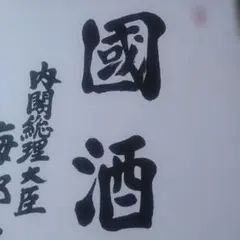 國酒
内閣総理大臣
海部